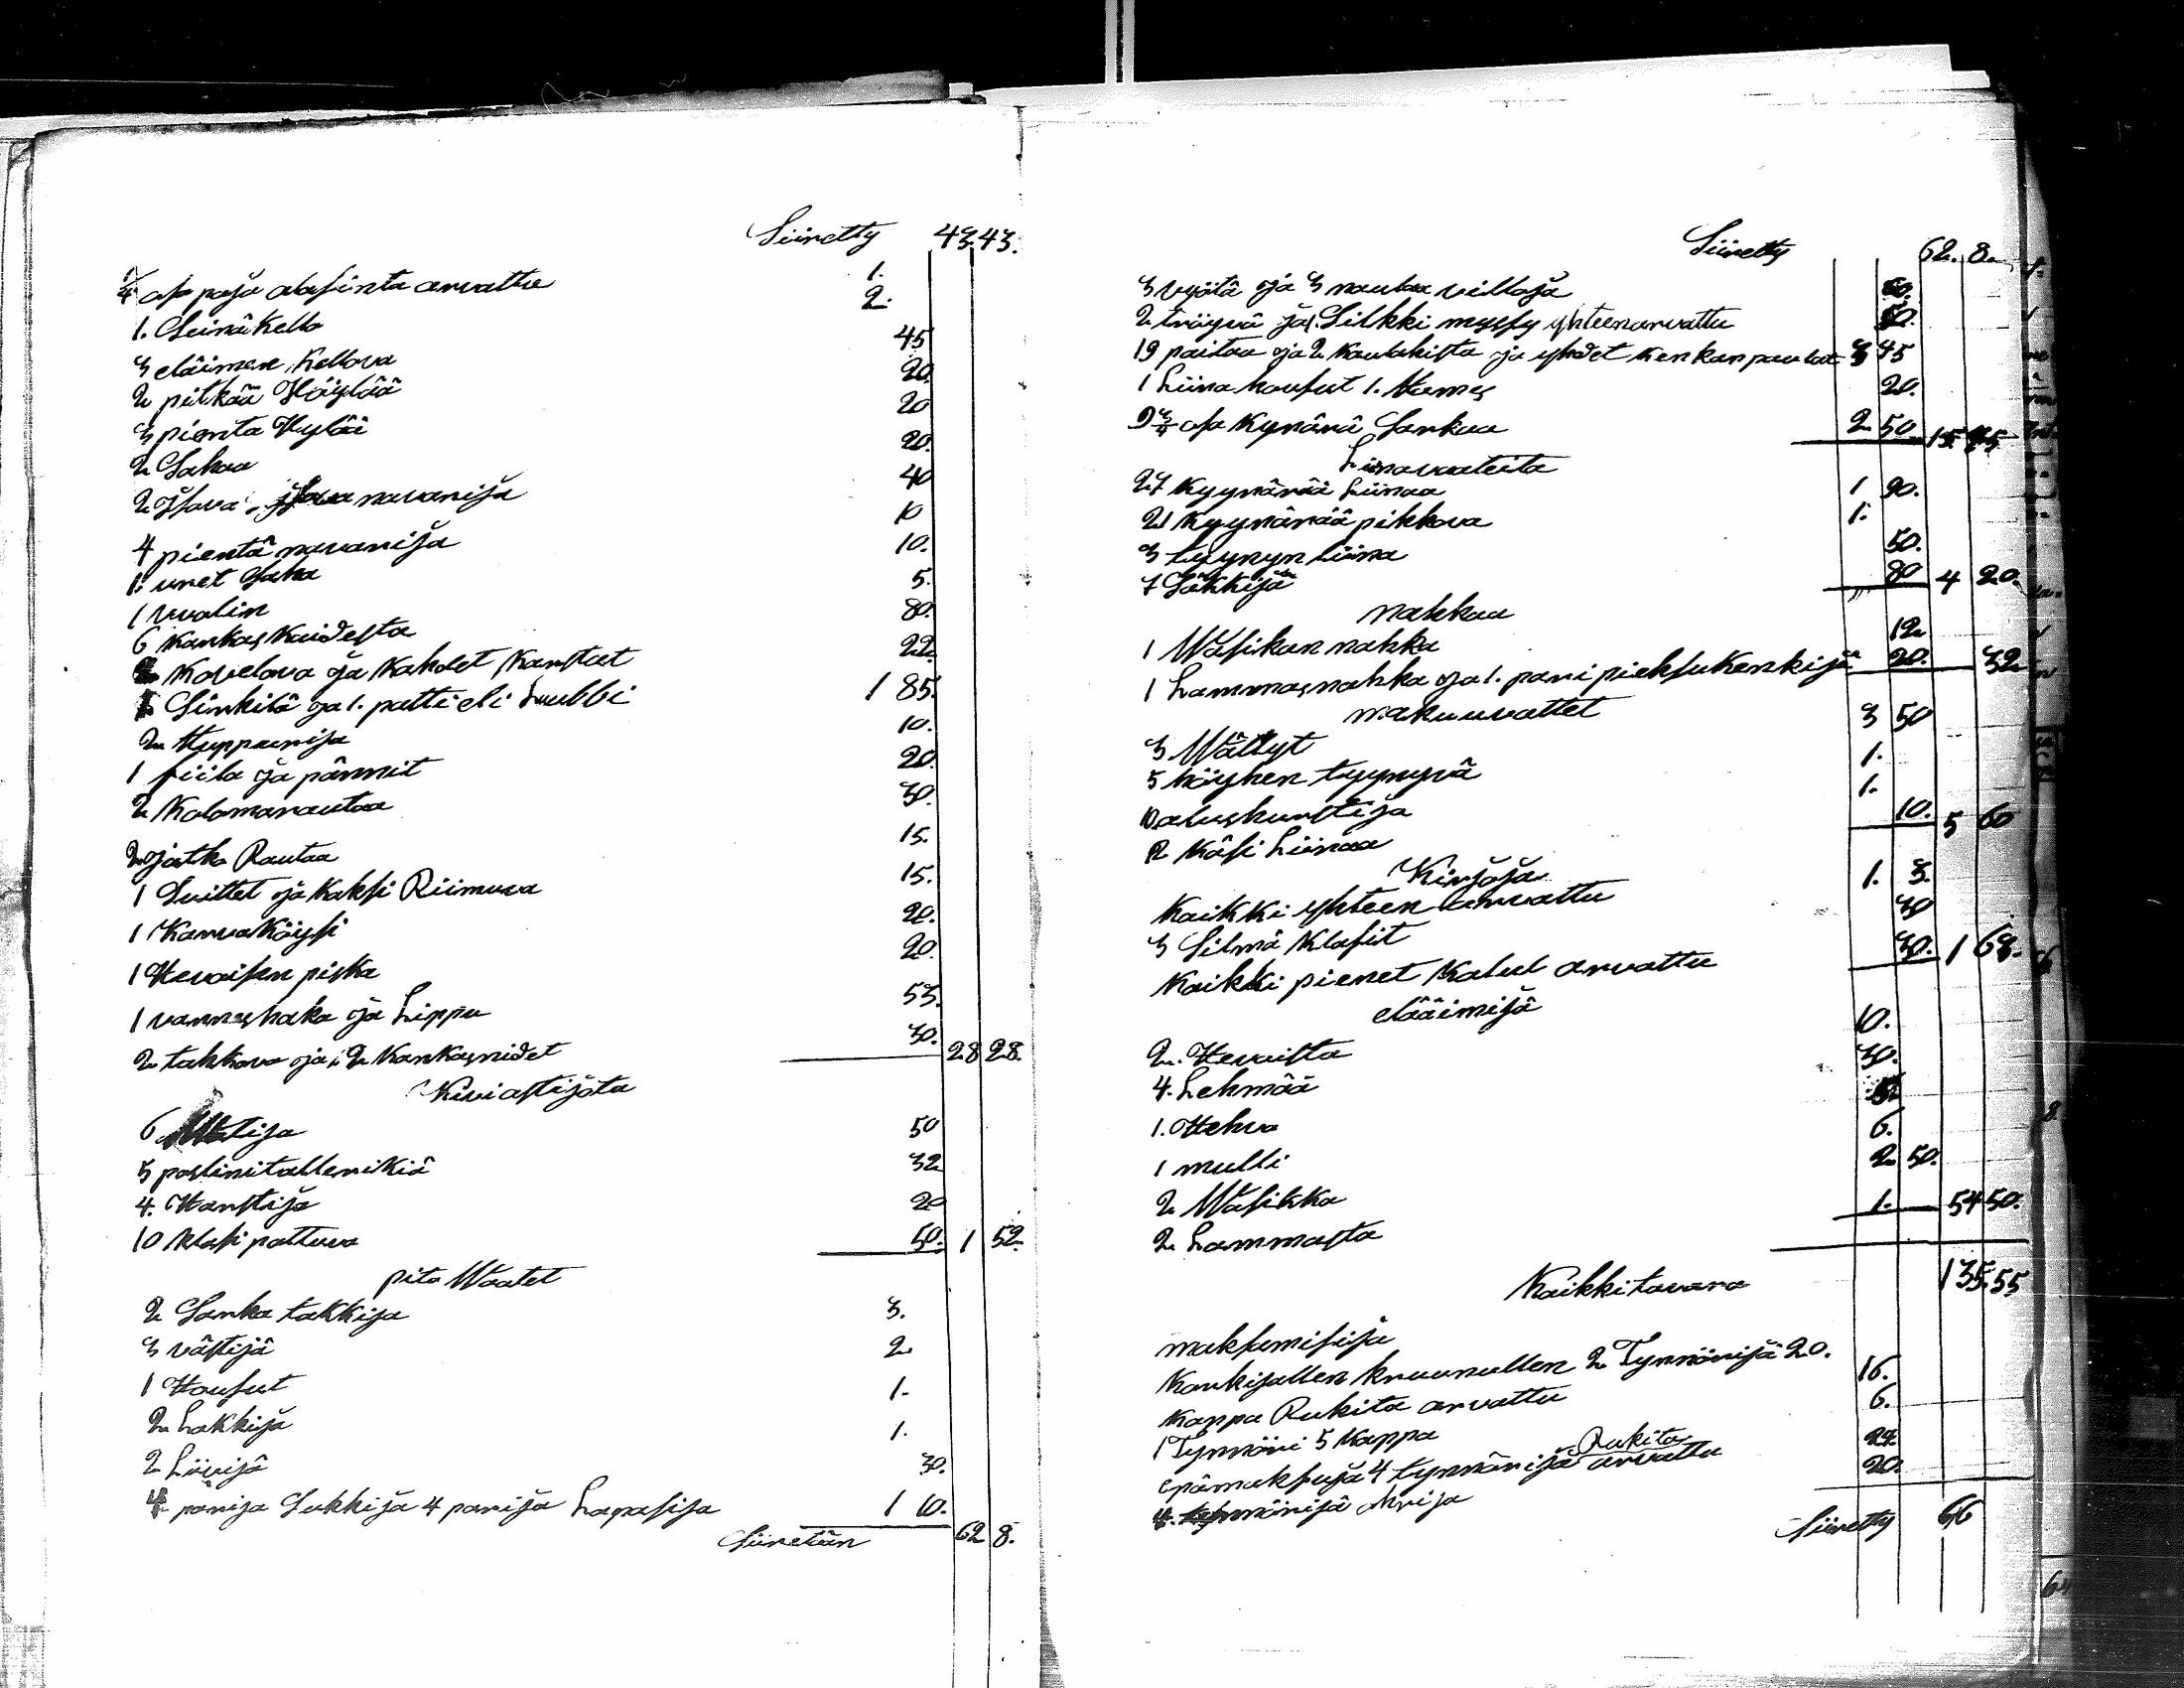 Siiretty 43. 43.
1/4 osa paja alasinta arvattu 1.
1. Seinä Kello 2.
3 eläimen Kellova 45
2 pitkää Höylää 20.
3 pientä Hylää 20
2 Sahaa 20.
2 Isova navarija 40
4 pientä navarija 10
1. uret Saha 10.
1 vuolin 5.
6 Kankas Kaidesta 80.
Kovelova ja Kahdet Karstat 22
Sinkilä ja 1. patti eli Luubbi 1 85.
2 Kupparija 10.
1 fiila ja pännit 20.
2 Kolomarautaa 30.
2 jatko Rautaa 15.
1 Suittet ja Kaksi Riimuva 15.
1 Karvaköysi 20.
1 Hevoisen piska 20.
1 vanneshaka ja Lippu 55.
2 tahkova ja 2 Kankasnidet 30. 28 28.
Kiviastijota
6 50
5 poslinitallerikiä 32
4. Karstija 20
10 Klasi pottuva 50. 1 52.
pito Waatet
2 Sarka takkija 3.
3 västijä 2
1 Housut 1.
2 Lakkija 1.
2 Liivijä 30.
4 parija Sukkija 4 parija Lapasija 1 10.
Siiretään 62 8.
Siiretty 62. 8.
3 vyötä ja 3 naulaa villoja 60.
2 tröyvä ja 1. Silkki myssy yhteenarvattu 50.
19 paitaa ja 2 Kaulahista ja yhdet Kenkän paulat 3 45
1 Liina housut 1. Hames 20.
9 3/4 osa Kynärä Sarkaa 2 50 15
Linavaateita
27 Kyynärää Liinaa 1 90.
21 Kyynärää pikkova 1.
3 tyynyn Liina 50.
7 Säkkijä 80 4 20.
nahkaa
1 Wasikan nahka 12
1 Lammasnahka ja 1. pari pieksukenkijä 20. 32
makuuvattet
3 Wällyt 3 50
5 höyhen tyynyvä 1.
alushurstija 1.
2 Käsi Liinaa 10. 5 60
Kirjoja
Kaikki yhteen arvattu 1. 3.
3 Silmä Klasit 30
Kaikki pienet Kalut arvattu 30. 1 63.
elääimijä
2. Hevoista 10.
4. Lehmää 30.
1. Hehvo 5.
1 mulli 6.
2 Wasikka 2 50.
2 Lammasta 1. 54 50.
Kaikki tavara 135. 55
maksamisija
Kaukijallen kruunullen 2 Tynnörijä 20.
Kappa Rukita arvattu 16.
1 Tynnöri 5 Kappa 6.
epämaksuja 4 tynnörijä Rukita arvattu 24
4. tynnörijä ohrija 20.
Siiretty 66